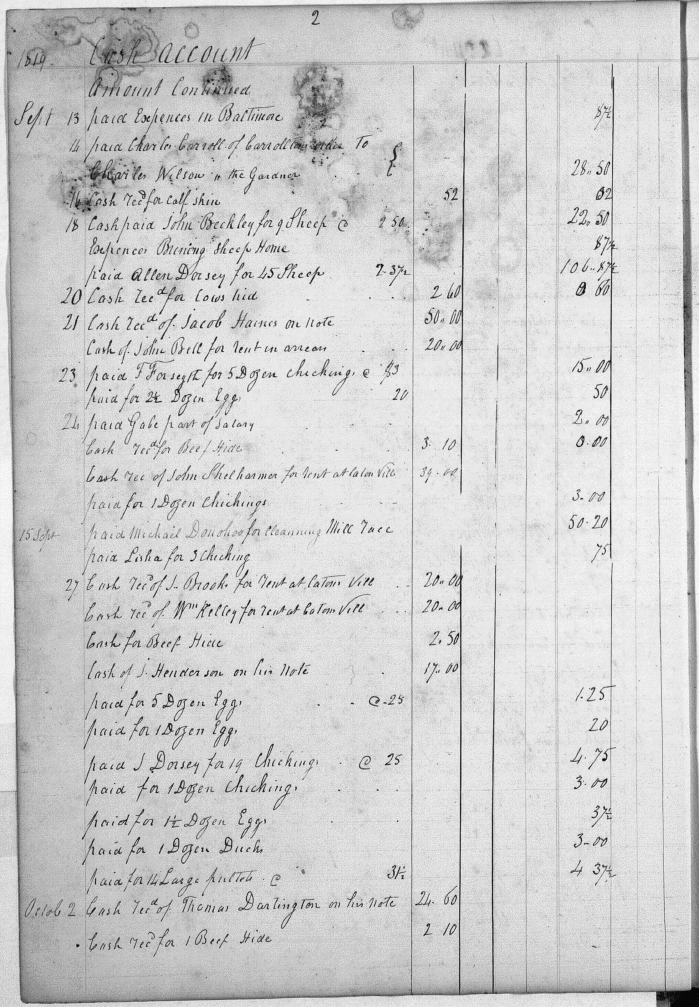 2
1819. Cash account
Amount Continued
Sept 13 paid Expences in Baltimore 87½
14 paid Charles Carroll of Carrollton order To
Charles Wilson the Gardner 28.50
16 Cash Recd for Calf skin 52 02
18 Cash paid John Beckley for 9 Sheep @ 2 50 22.50
Expences Brining sheep Home 87½
paid Allen Dorsey for 45 Sheep 2.37½ 106.87½
20 Cash Recd for Cows hid 2 60 0 00
21 Cash Recd of Jacob Haines on note 50.00
Cash of John Bell for rent in arrears 20.00
23 paid T Forsyth for 5 Dozen Chickings @ $3 15.00
paid for 2½ Dozen Eggs 20 50
24 paid Gabe part of Salary 2.00
Cash Recd for Beef Hide 3 10 0.00
Cash Rec of John Shelharmer for rent at Eaton Vill 39.00
paid for 1 Dozen Chickings 3.00
15 Sept paid Michael Donohoo for Cleanning Mill Race 50.20
paid Lisha for 3 Chicking 75
27 Cash Recd of J. Brooks for rent at Eatons Vill 20.00
Cash Recd of Wm Kelley for rent at Eatons Vill 20.00
Cash for Beef Hide 2.50
Cash of J. Henderson on his Note 17.00
paid for 5 Dozen Eggs @ .25 1.25
paid for 1 Dozen Eggs 20
paid J Dorsey for 19 Chickings @ 25 4.75
paid for 1 Dozen Chickings 3.00
paid for 1½ Dozen Eggs 37½
paid for 1 Dozen Ducks 3.00
paid for 14 Large pullets @ 31½ 4 37½
Octob 2 Cash Recd of Thomas Darlington on his note 24.60
Cash Recd for 1 Beef Hide 2 10